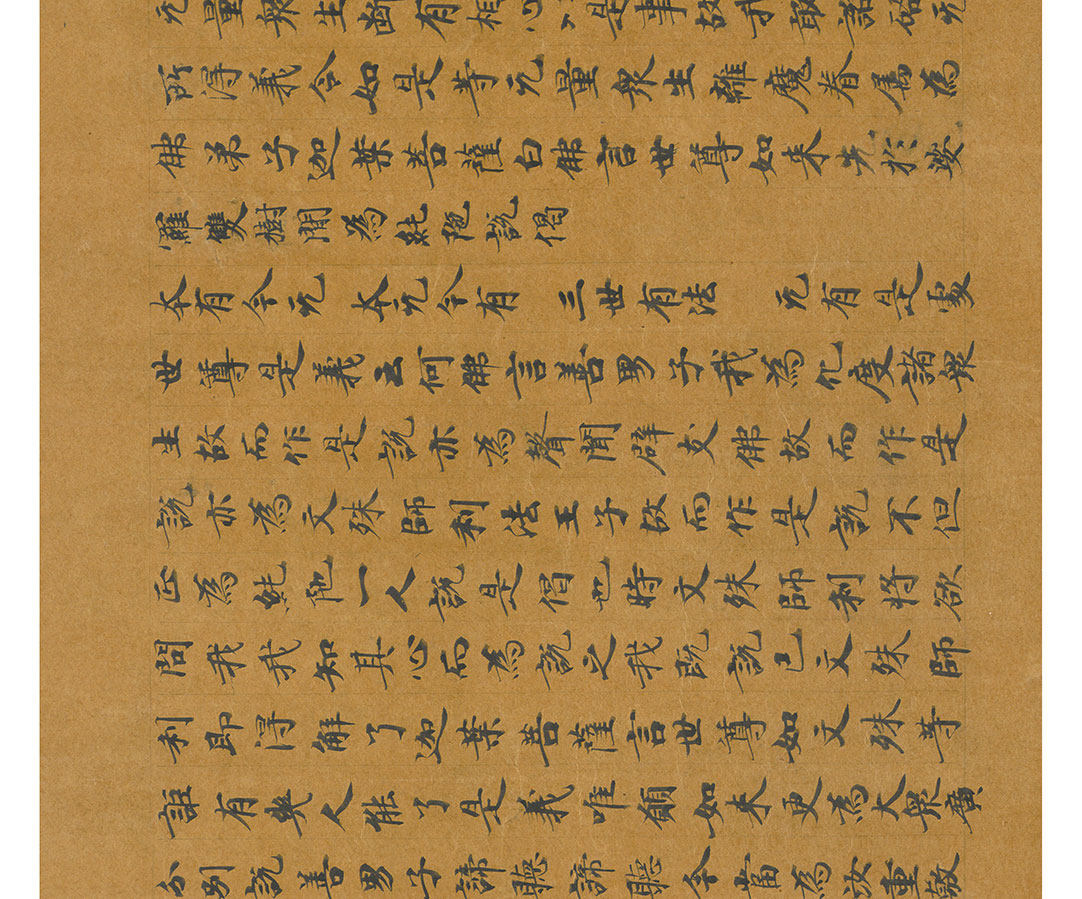 无量衆生斷有相心以是事故我敢諮啓无
所得義令如是等无量衆生離魔眷属為
佛弟子迦葉菩薩白佛言世尊如来先於娑
羅雙樹間為純陁說偈
本有今无 本无今有 三世有法 无有是處
世尊是義云何佛言善男子我為化度諸衆
生故而作是說亦為聲聞辟支佛故而作是
說亦為文殊師利法王子故而作是說不但
正為純陁一人說是偈也時文殊師利将欲
問我我知其心而為說之我既說已文殊師
利即得解了迦葉菩薩言世尊如文殊等
詎有幾人能了是義唯願如来更為大衆廣
分別說善男子諦聽諦聽今當為汝重敷